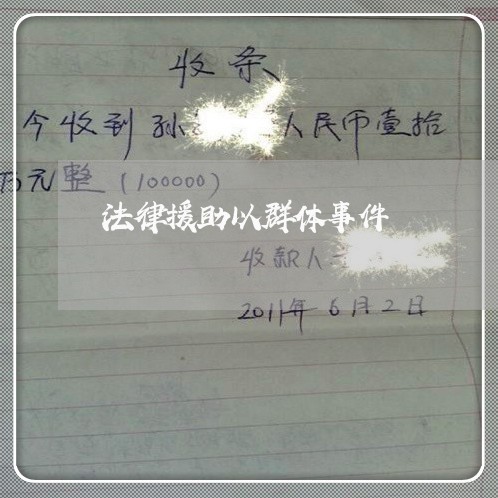 收条
今收到孙 人民币壹拾
万元整(100000)
法律援助以群体事件
收款人
2011年6月2日